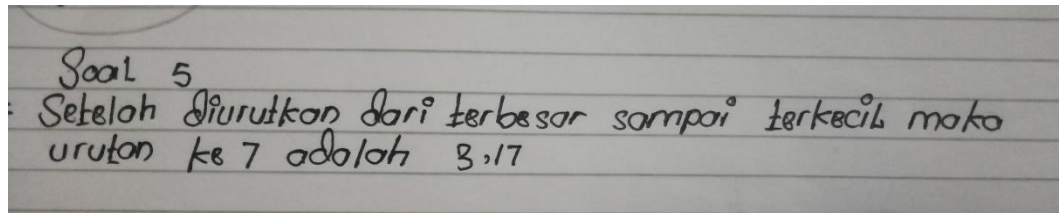 Soal 5
Setelah diurutkan dari terbesar sampai terkecil maka
urutan ke 7 adalah 3,17